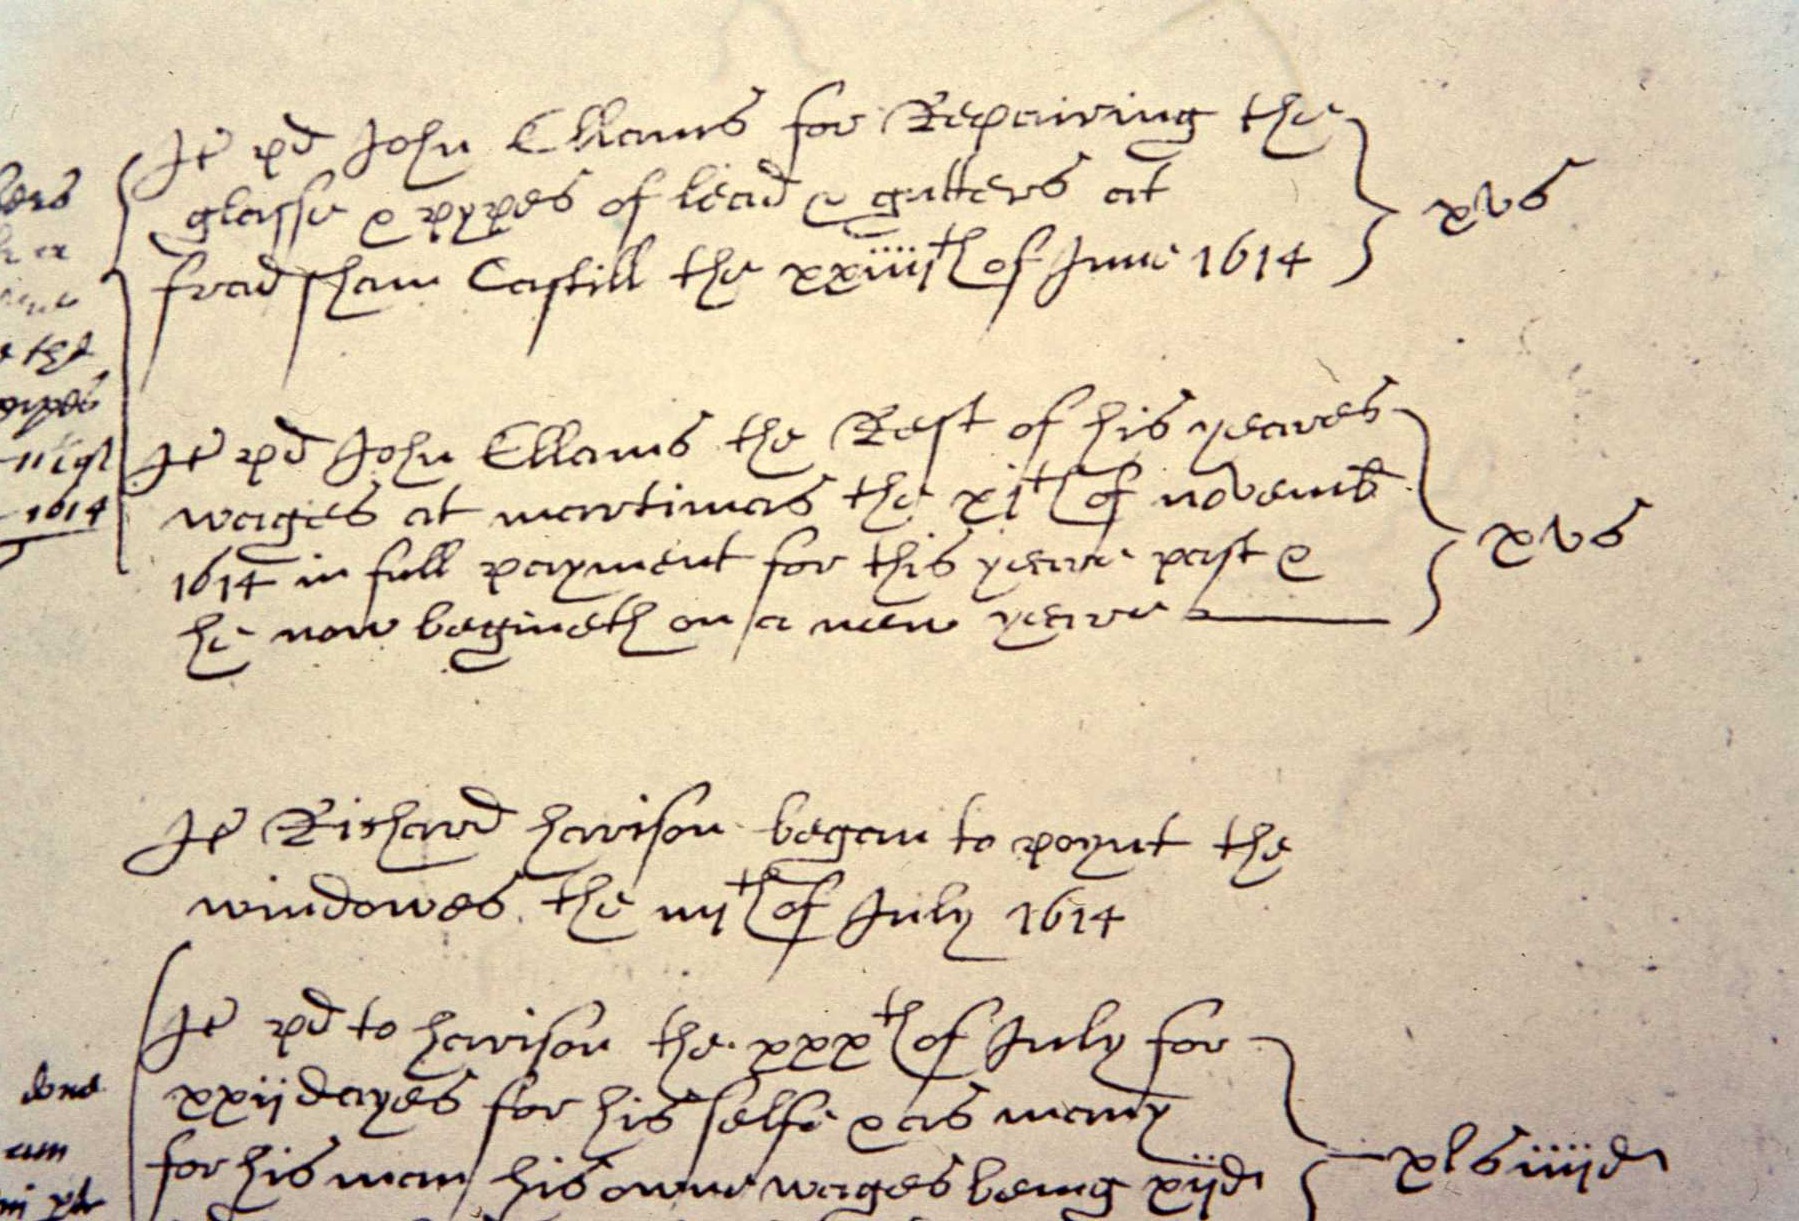 It pd John Ellams for Repairing the
glasse & pypes of lead & gutters at
fradsham Castill the xxiiijth of June 1614
xvs
It pd John Ellams the Rest of his yeares
wages at martimas the xjth of novemb
1614 in full payment for this yeare past &
he now begineth on a new yeare
xvs
It Richard harison began to poynt the
windowes the iiijth of July 1614
It pd to harison the xxxth of July for
xxij dayes for his selfe & as many
for his man his owne wages being xijd
xls iiijd
the
pypes
1614
done